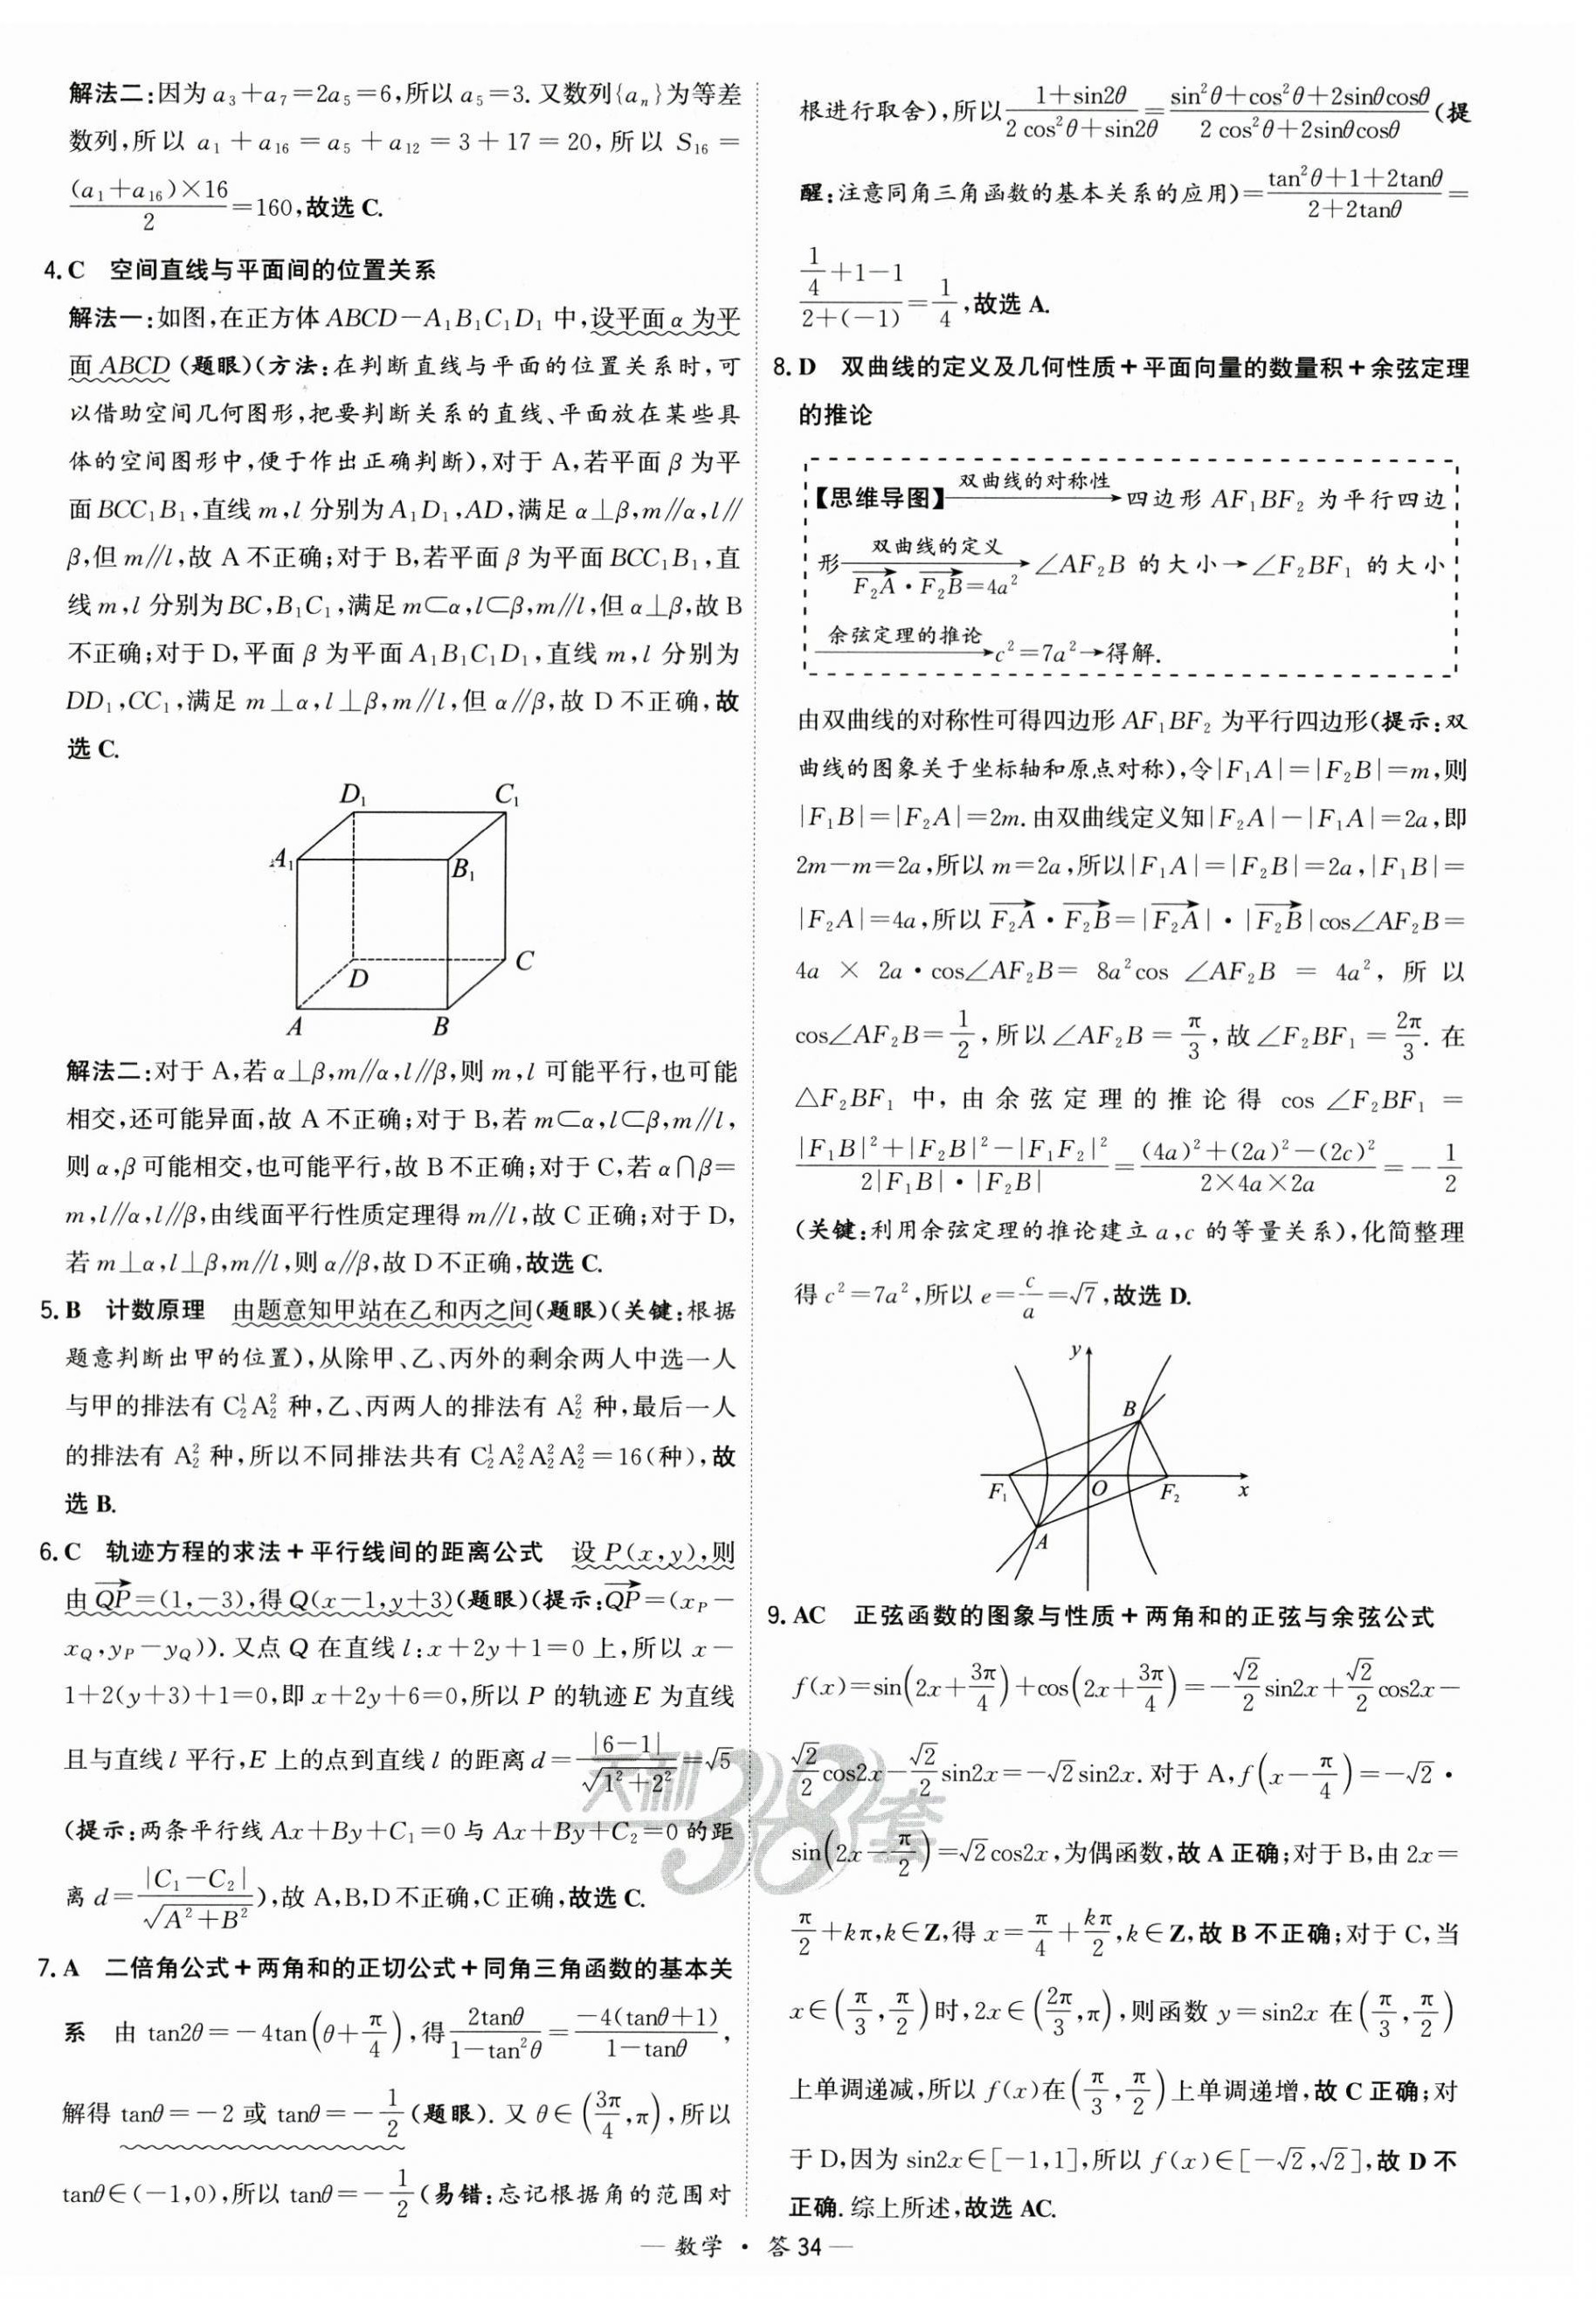 解法二:因为 a₃+a₇=2a₅=6,所以 a₅=3. 又数列{aₙ}为等差
数列,所以 a₁+a₁₆=a₅+a₁₂=3+17=20,所以 S₁₆=
(a₁+a₁₆)×16/2=160,故选 C.
4. C 空间直线与平面间的位置关系
解法一:如图,在正方体 ABCD-A₁B₁C₁D₁ 中,设平面 α 为平
面 ABCD (题眼)(方法:在判断直线与平面的位置关系时,可
以借助空间几何图形,把要判断关系的直线、平面放在某些具
体的空间图形中,便于作出正确判断),对于 A,若平面 β 为平
面 BCC₁B₁,直线 m,l 分别为 A₁D₁,AD,满足 α⊥β,m∥α,l∥
β,但 m∥l,故 A 不正确;对于 B,若平面 β 为平面 BCC₁B₁,直
线 m,l 分别为 BC,B₁C₁,满足 m⊂α,l⊂β,m∥l,但 α⊥β,故 B
不正确;对于 D,平面 β 为平面 A₁B₁C₁D₁,直线 m,l 分别为
DD₁,CC₁,满足 m⊥α,l⊥β,m∥l,但 α∥β,故 D 不正确,故
选 C.
D₁ C₁
A₁ B₁
D C
A B
解法二:对于 A,若 α⊥β,m∥α,l∥β,则 m,l 可能平行,也可能
相交,还可能异面,故 A 不正确;对于 B,若 m⊂α,l⊂β,m∥l,
则 α,β 可能相交,也可能平行,故 B 不正确;对于 C,若 α∩β=
m,l∥α,l∥β,由线面平行性质定理得 m∥l,故 C 正确;对于 D,
若 m⊥α,l⊥β,m∥l,则 α∥β,故 D 不正确,故选 C.
5. B 计数原理 由题意知甲站在乙和丙之间(题眼)(关键:根据
题意判断出甲的位置),从除甲、乙、丙外的剩余两人中选一人
与甲的排法有 C₂¹A₂² 种,乙、丙两人的排法有 A₂² 种,最后一人
的排法有 A₂² 种,所以不同排法共有 C₂¹A₂²A₂²A₂²=16(种),故
选 B.
6. C 轨迹方程的求法+平行线间的距离公式 设 P(x,y),则
由 QP→=(1,-3),得 Q(x-1,y+3)(题眼)(提示:QP→=(x_P-
x_Q,y_P-y_Q)). 又点 Q 在直线 l:x+2y+1=0 上,所以 x-
1+2(y+3)+1=0,即 x+2y+6=0,所以 P 的轨迹 E 为直线
且与直线 l 平行,E 上的点到直线 l 的距离 d=|6-1|/√(1²+2²)=√5
(提示:两条平行线 Ax+By+C₁=0 与 Ax+By+C₂=0 的距
离 d=|C₁-C₂|/√(A²+B²)),故 A,B,D 不正确,C 正确,故选 C.
7. A 二倍角公式+两角和的正切公式+同角三角函数的基本关
系 由 tan2θ=-4tan(θ+π/4),得 2tanθ/(1-tan²θ)=-4(tanθ+1)/(1-tanθ),
解得 tanθ=-2 或 tanθ=-1/2(题眼). 又 θ∈(3π/4,π),所以
tanθ∈(-1,0),所以 tanθ=-1/2(易错:忘记根据角的范围对
根进行取舍),所以 (1+sin2θ)/(2cos²θ+sin2θ)=(sin²θ+cos²θ+2sinθcosθ)/(2cos²θ+2sinθcosθ)(提
醒:注意同角三角函数的基本关系的应用)=(tan²θ+1+2tanθ)/(2+2tanθ)=
(1/4+1-1)/(2+(-1))=1/4,故选 A.
8. D 双曲线的定义及几何性质+平面向量的数量积+余弦定理
的推论
【思维导图】双曲线的对称性→四边形 AF₁BF₂ 为平行四边
形 双曲线的定义 F₂A→·F₂B→=4a² →∠AF₂B 的大小→∠F₂BF₁ 的大小
余弦定理的推论→c²=7a²→得解.
由双曲线的对称性可得四边形 AF₁BF₂ 为平行四边形(提示:双
曲线的图象关于坐标轴和原点对称),令|F₁A|=|F₂B|=m,则
|F₁B|=|F₂A|=2m. 由双曲线定义知|F₂A|-|F₁A|=2a,即
2m-m=2a,所以 m=2a,所以|F₁A|=|F₂B|=2a,|F₁B|=
|F₂A|=4a,所以 F₂A→·F₂B→=|F₂A→|·|F₂B→|cos∠AF₂B=
4a×2a·cos∠AF₂B=8a²cos∠AF₂B=4a²,所以
cos∠AF₂B=1/2,所以∠AF₂B=π/3,故∠F₂BF₁=2π/3. 在
△F₂BF₁ 中,由余弦定理的推论得 cos∠F₂BF₁=
(|F₁B|²+|F₂B|²-|F₁F₂|²)/(2|F₁B|·|F₂B|)=((4a)²+(2a)²-(2c)²)/(2×4a×2a)=-1/2
(关键:利用余弦定理的推论建立 a,c 的等量关系),化简整理
得 c²=7a²,所以 e=c/a=√7,故选 D.
y
B
F₁ O F₂ x
A
9. AC 正弦函数的图象与性质+两角和的正弦与余弦公式
f(x)=sin(2x+3π/4)+cos(2x+3π/4)=-√2/2 sin2x+√2/2 cos2x-
√2/2 cos2x-√2/2 sin2x=-√2sin2x. 对于 A,f(x-π/4)=-√2·
sin(2x-π/2)=√2cos2x,为偶函数,故 A 正确;对于 B,由 2x=
π/2+kπ,k∈Z,得 x=π/4+kπ/2,k∈Z,故 B 不正确;对于 C,当
x∈(π/3,π/2)时,2x∈(2π/3,π),则函数 y=sin2x 在(π/3,π/2)
上单调递减,所以 f(x)在(π/3,π/2)上单调递增,故 C 正确;对
于 D,因为 sin2x∈[-1,1],所以 f(x)∈[-√2,√2],故 D 不
正确. 综上所述,故选 AC.
天利38套
— 数学 · 答 34 —